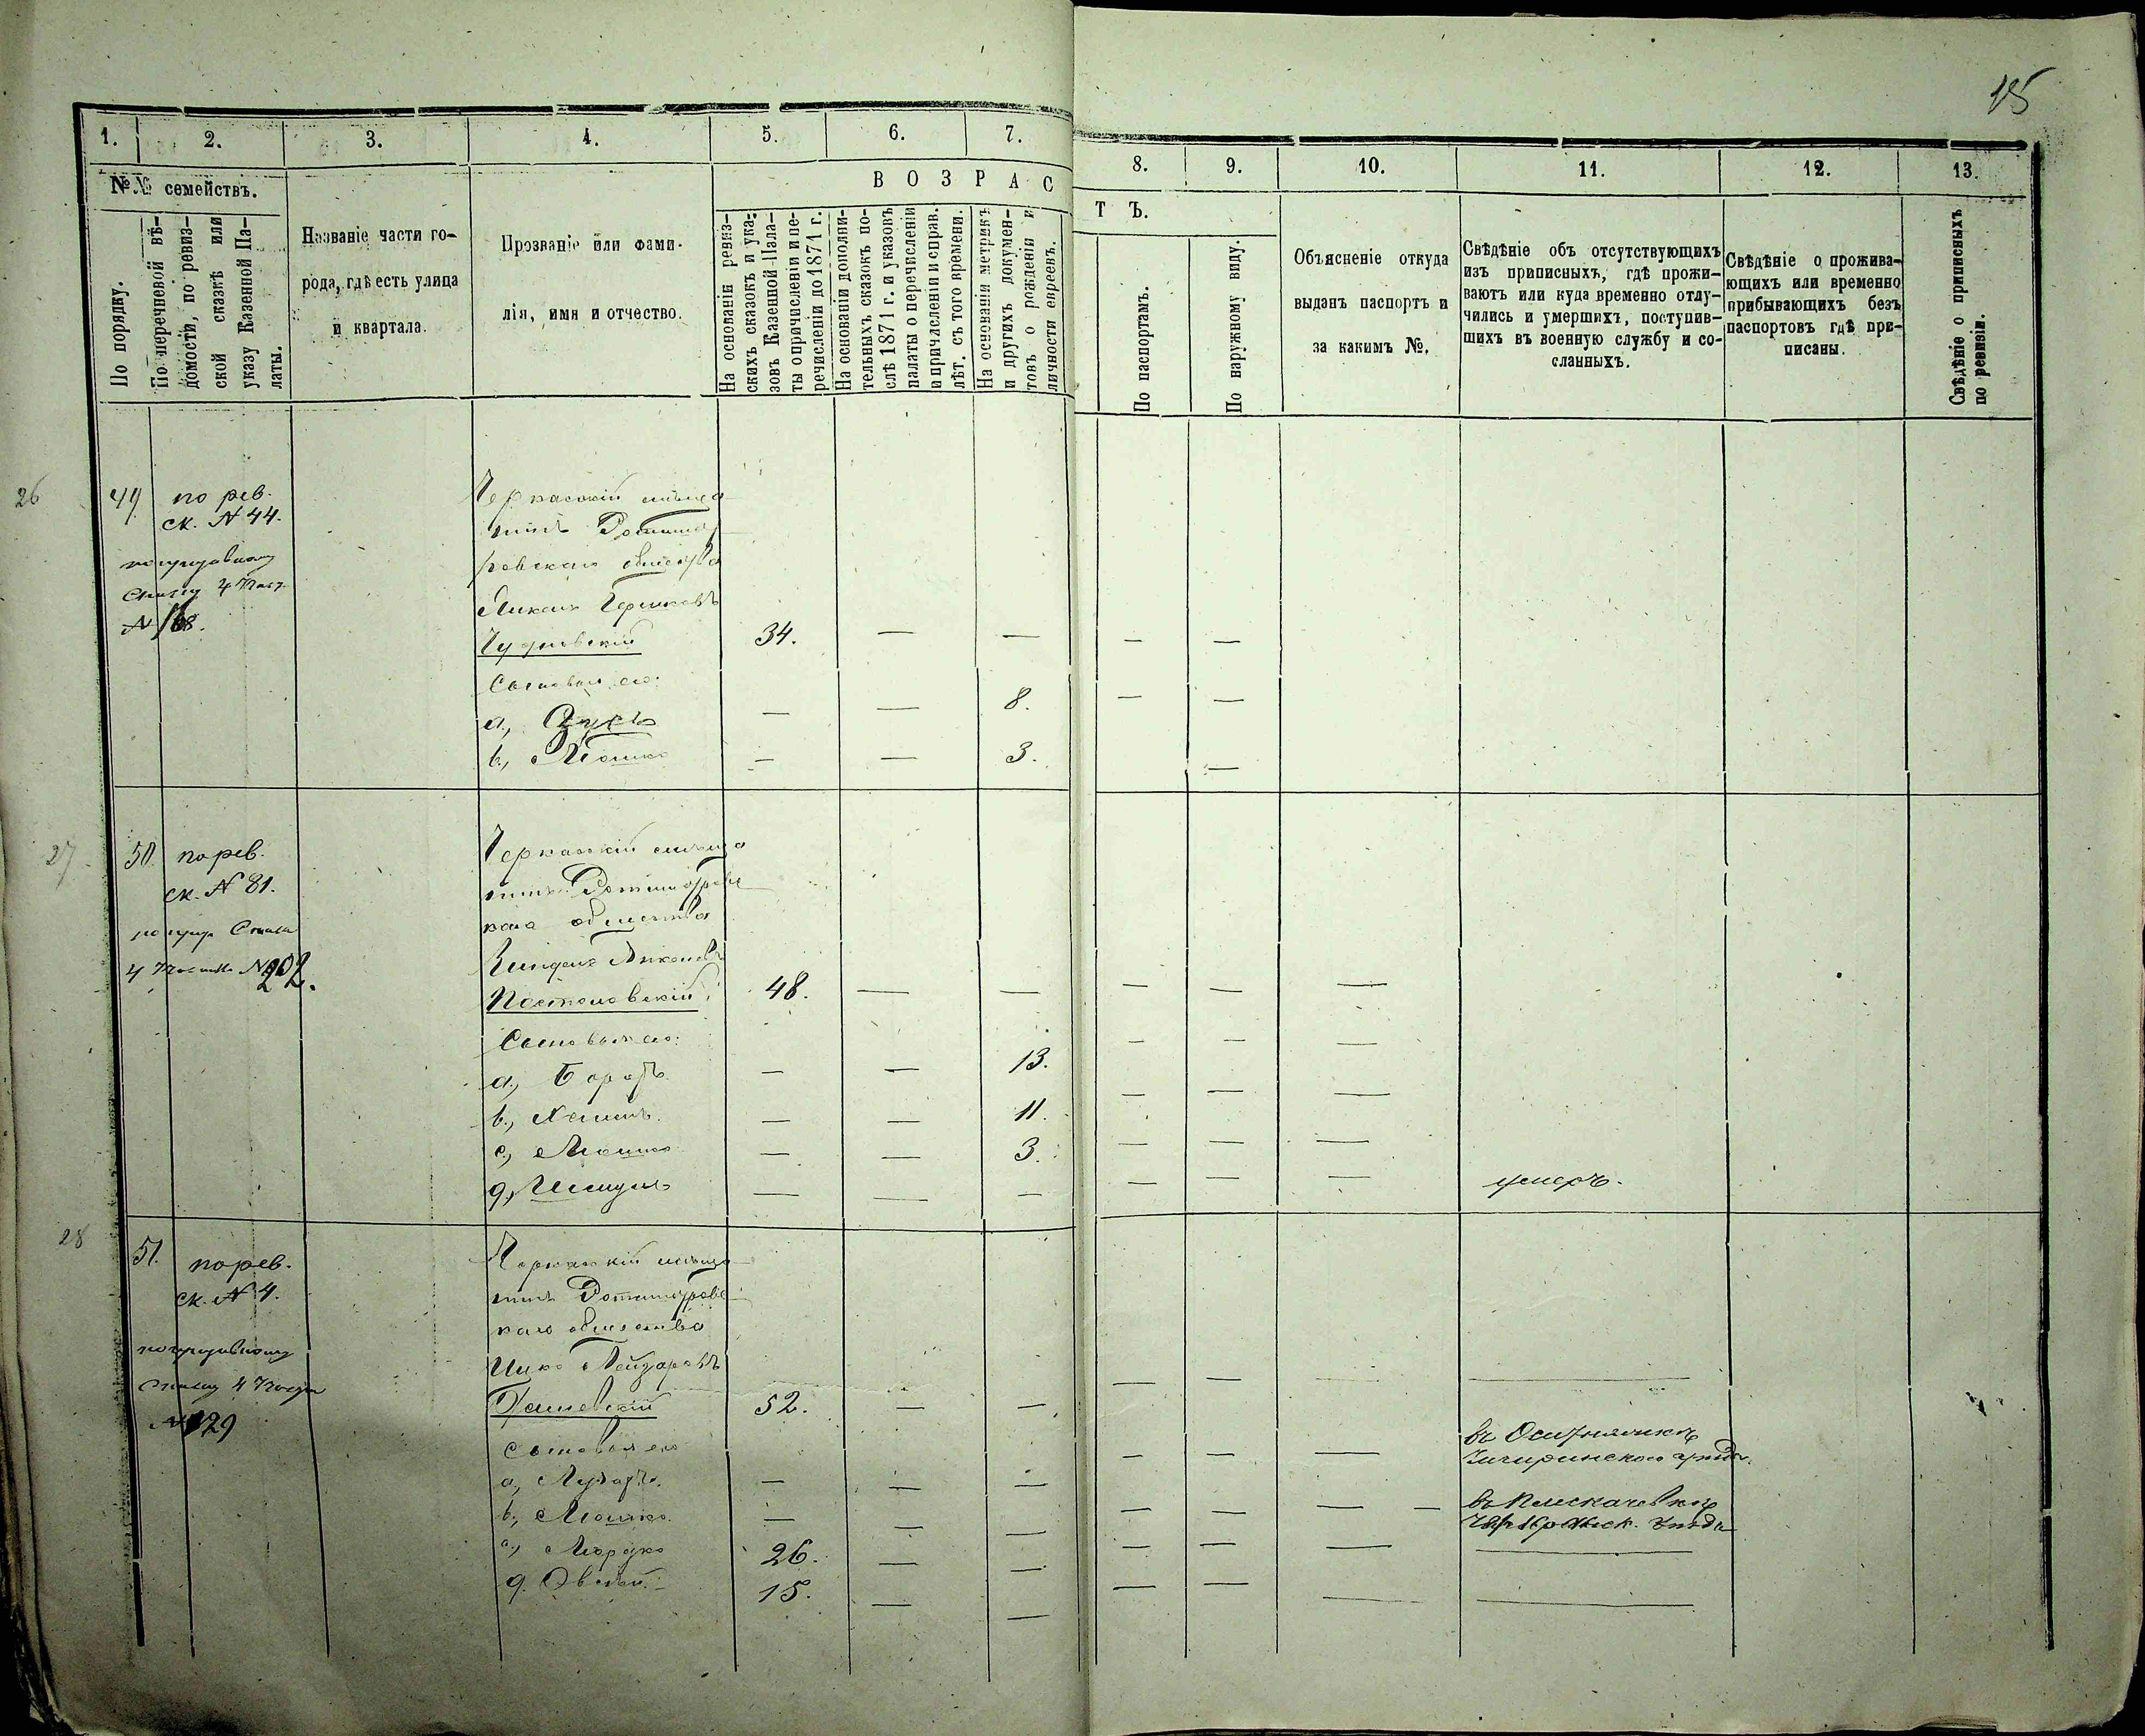 15
1. 2. 3. 4. 5. 6. 7. 8. 9. 10. 11. 12. 13.
№№ семействъ.
По порядку.
По перечневой вѣ-
домости, по ревиз-
ской сказкѣ или
указу Казенной Па-
латы.
Названіе части го-
рода, гдѣ есть улица
и квартала.
Прозваніе или фами-
лія, имя и отчество.
ВОЗРАСТЪ.
На основаніи ревиз-
скихъ сказокъ и ука-
зовъ Казенной Пала-
ты о причисленіи и пе-
речисленіи до 1871 г.
На основаніи дополни-
тельныхъ сказокъ по-
слѣ 1871 г. и указовъ
палаты о перечисленіи
и причисленіи и справ.
лѣт. съ того времени.
На основаніи метрикъ
и другихъ докумен-
товъ о рожденіи и
личности евреевъ.
По паспортамъ.
По наружному виду.
Объясненіе откуда
выданъ паспортъ и
за какимъ №.
Свѣдѣніе объ отсутствующихъ
изъ приписныхъ, гдѣ прожи-
ваютъ или куда временно отлу-
чились и умершихъ, поступив-
шихъ въ военную службу и со-
сланныхъ.
Свѣдѣніе о прожива-
ющихъ или временно
прибывающихъ безъ
паспортовъ гдѣ при-
писаны.
Свѣдѣніе о приписныхъ
по ревизіи.
26
49 по рев.
ск. № 44.
№ 168.
Черкаскій мѣща-
нинъ Ротмист-
ровскаго общества
Чудновскій 34. — — — —
Сыновья его:
а, — — 8. — —
b, Мошко — — 3. —
27
50. по рев.
ск. № 81.
202.
Черкаскій мѣща
нинъ Ротмистровс
каго общества
Постоловскій 48. — — — — —
Сыновья его: — — —
а, — — 13. — — —
b, Хаимъ — — 11. — — —
с, Мошко — — 3. — — —
д, Шмуль — — — умеръ.
28
51. по рев.
ск. № 4.
129
Черкаскій мѣща
нинъ Ротмистровс
каго общества
Ицко Лейзеровъ
52. — — — — — —
Сыновья его
а, — — — — — — въ Оситняжкѣ
Чигиринскаго уѣзда.
b, Мошко — — — — — — въ Плискачевкѣ
уѣзда
с, Мордко 26. — — — — — —
д. Овсѣй 15. — — — — — —